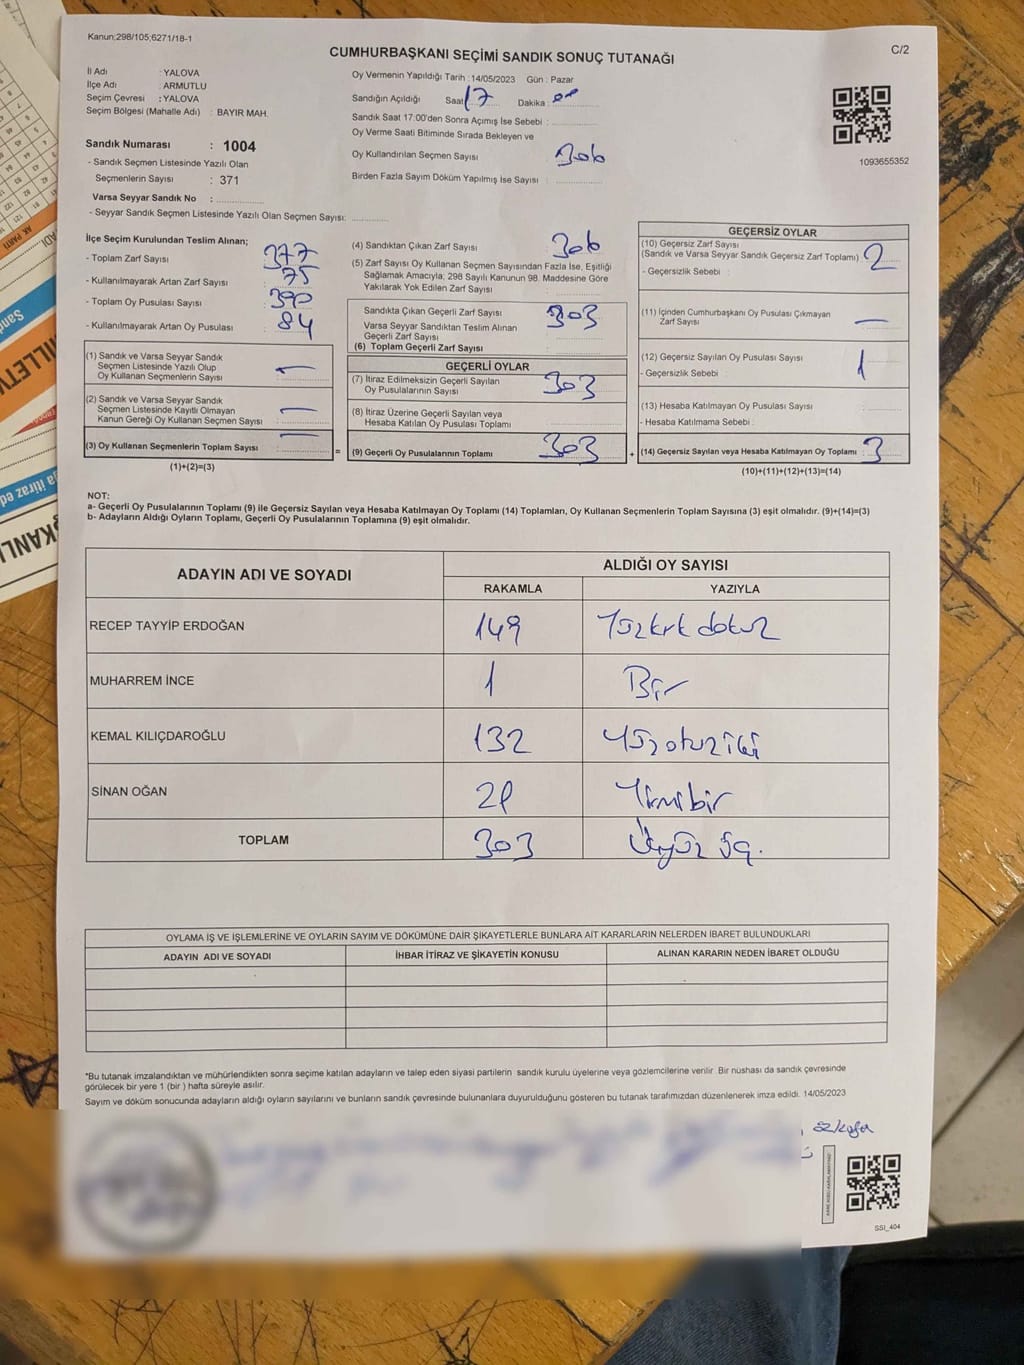 Kanun;298/105;6271/18-1
CUMHURBAŞKANI SEÇİMİ SANDIK SONUÇ TUTANAĞI
C/2
İl Adı : YALOVA
İlçe Adı : ARMUTLU
Seçim Çevresi : YALOVA
Seçim Bölgesi (Mahalle Adı) : BAYIR MAH.
Sandık Numarası : 1004
- Sandık Seçmen Listesinde Yazılı Olan
Seçmenlerin Sayısı : 371
Varsa Seyyar Sandık No :
- Seyyar Sandık Seçmen Listesinde Yazılı Olan Seçmen Sayısı:
Oy Vermenin Yapıldığı Tarih : 14/05/2023 Gün : Pazar
Sandığın Açıldığı Saat 17 Dakika : 00
Sandık Saat 17:00'den Sonra Açımış İse Sebebi :
Oy Verme Saati Bitiminde Sırada Bekleyen ve
Oy Kullandırılan Seçmen Sayısı 306
Birden Fazla Sayım Döküm Yapılmış İse Sayısı :
1093655352
İlçe Seçim Kurulundan Teslim Alınan;
- Toplam Zarf Sayısı : 377
- Kullanılmayarak Artan Zarf Sayısı : 75
- Toplam Oy Pusulası Sayısı : 390
- Kullanılmayarak Artan Oy Pusulası : 84
(1) Sandık ve Varsa Seyyar Sandık
Seçmen Listesinde Yazılı Olup
Oy Kullanan Seçmenlerin Sayısı : —
(2) Sandık ve Varsa Seyyar Sandık
Seçmen Listesinde Kayıtlı Olmayan
Kanun Gereği Oy Kullanan Seçmen Sayısı : —
(3) Oy Kullanan Seçmenlerin Toplam Sayısı : —
(1)+(2)=(3)
(4) Sandıktan Çıkan Zarf Sayısı 306
(5) Zarf Sayısı Oy Kullanan Seçmen Sayısından Fazla İse, Eşitliği
Sağlamak Amacıyla; 298 Sayılı Kanunun 98. Maddesine Göre
Yakılarak Yok Edilen Zarf Sayısı :
Sandıkta Çıkan Geçerli Zarf Sayısı 303
Varsa Seyyar Sandıktan Teslim Alınan
Geçerli Zarf Sayısı :
(6) Toplam Geçerli Zarf Sayısı :
GEÇERLİ OYLAR
(7) İtiraz Edilmeksizin Geçerli Sayılan
Oy Pusulalarının Sayısı 303
(8) İtiraz Üzerine Geçerli Sayılan veya
Hesaba Katılan Oy Pusulası Toplamı :
= (9) Geçerli Oy Pusulalarının Toplamı 303
GEÇERSİZ OYLAR
(10) Geçersiz Zarf Sayısı
(Sandık ve Varsa Seyyar Sandık Geçersiz Zarf Toplamı) : 2
- Geçersizlik Sebebi :
(11) İçinden Cumhurbaşkanı Oy Pusulası Çıkmayan
Zarf Sayısı : —
(12) Geçersiz Sayılan Oy Pusulası Sayısı : 1
- Geçersizlik Sebebi :
(13) Hesaba Katılmayan Oy Pusulası Sayısı :
- Hesaba Katılmama Sebebi :
+ (14) Geçersiz Sayılan veya Hesaba Katılmayan Oy Toplamı : 3
(10)+(11)+(12)+(13)=(14)
NOT:
a- Geçerli Oy Pusulalarının Toplamı (9) ile Geçersiz Sayılan veya Hesaba Katılmayan Oy Toplamı (14) Toplamları, Oy Kullanan Seçmenlerin Toplam Sayısına (3) eşit olmalıdır. (9)+(14)=(3)
b- Adayların Aldığı Oyların Toplamı, Geçerli Oy Pusulalarının Toplamına (9) eşit olmalıdır.
ADAYIN ADI VE SOYADI ALDIĞI OY SAYISI
RAKAMLA YAZIYLA
RECEP TAYYİP ERDOĞAN 149 Yüzkırk dokuz
MUHARREM İNCE 1 Bir
KEMAL KILIÇDAROĞLU 132 Yüzotuz iki
SİNAN OĞAN 21 Yirmi bir
TOPLAM 303 Üçyüz üç.
OYLAMA İŞ VE İŞLEMLERİNE VE OYLARIN SAYIM VE DÖKÜMÜNE DAİR ŞİKAYETLERLE BUNLARA AİT KARARLARIN NELERDEN İBARET BULUNDUKLARI
ADAYIN ADI VE SOYADI İHBAR İTİRAZ VE ŞİKAYETİN KONUSU ALINAN KARARIN NEDEN İBARET OLDUĞU
*Bu tutanak imzalandıktan ve mühürlendikten sonra seçime katılan adayların ve talep eden siyasi partilerin sandık kurulu üyelerine veya gözlemcilerine verilir. Bir nüshası da sandık çevresinde
görülecek bir yere 1 (bir ) hafta süreyle asılır.
Sayım ve döküm sonucunda adayların aldığı oyların sayılarını ve bunların sandık çevresinde bulunanlara duyurulduğunu gösteren bu tutanak tarafımızdan düzenlenerek imza edildi. 14/05/2023
SSI_404
AK PARTİ